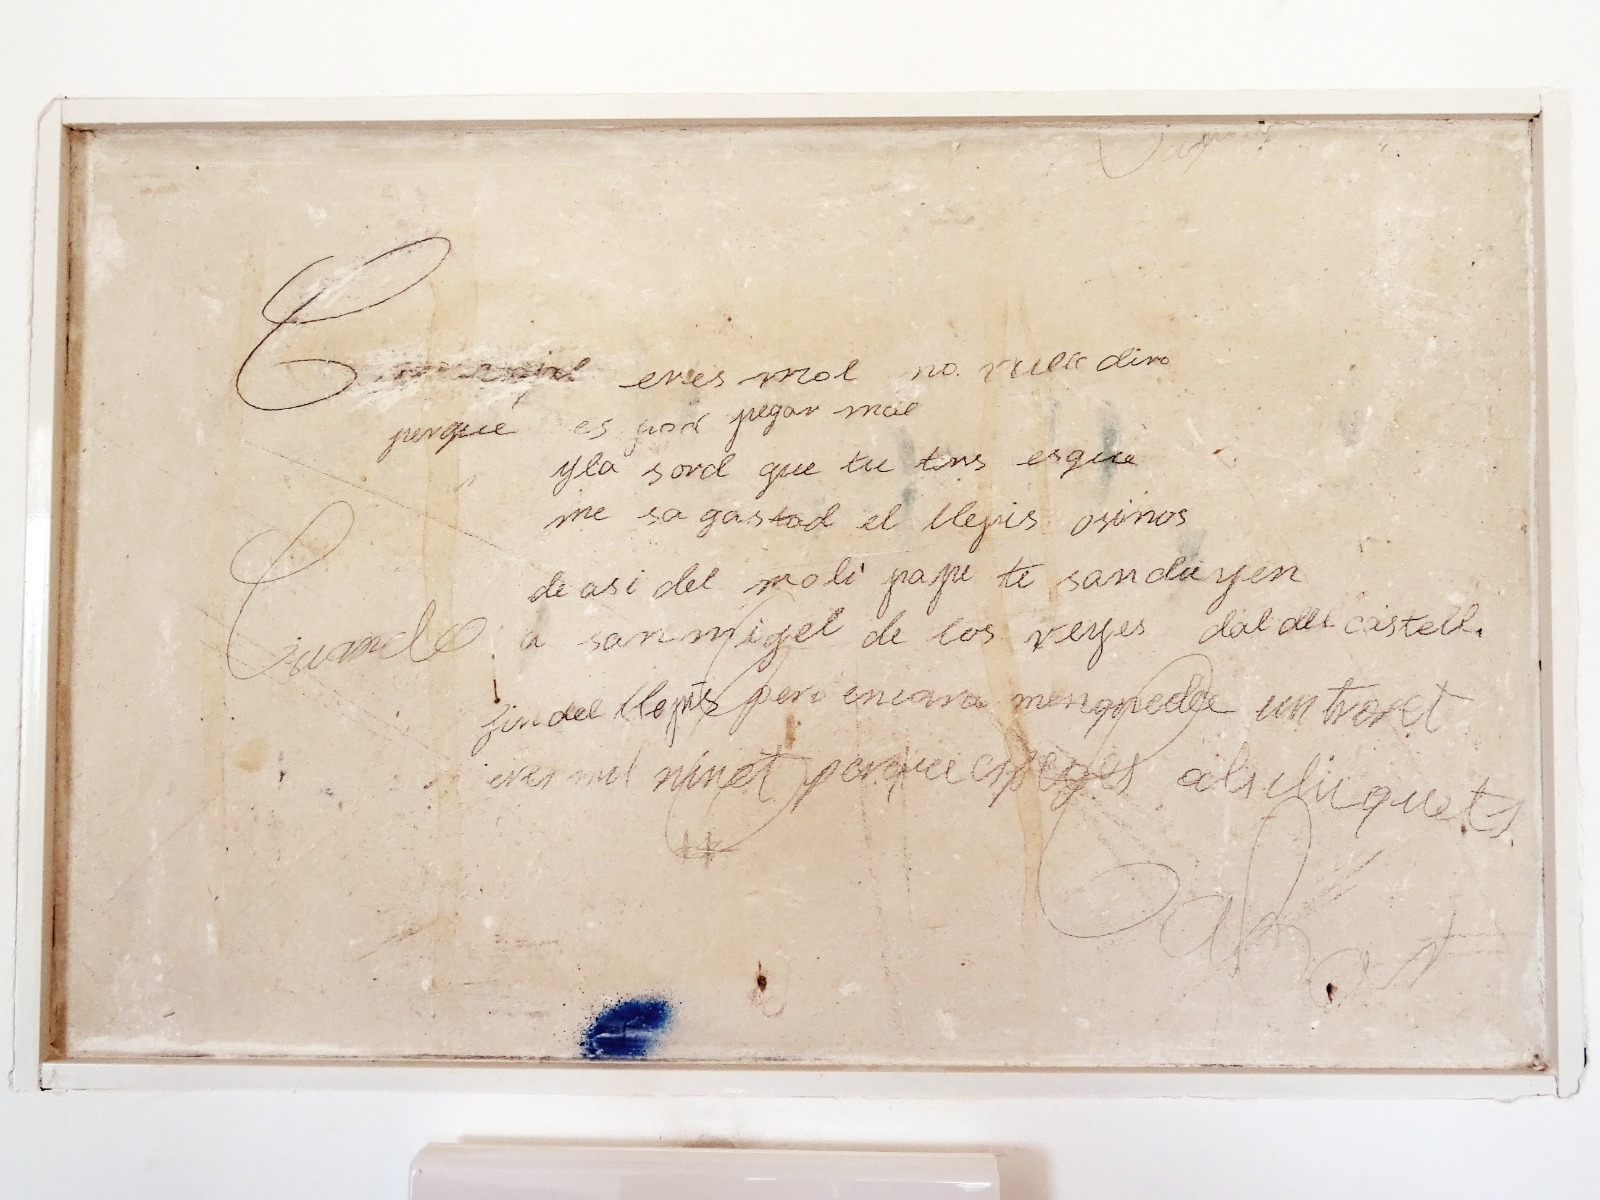 eres mol no
perque es pod pegar mal
y la sord que tu tens esque
me sa gastad el llepis osinos
de asi del moli pape te sanduyen
Cuando a san migel de los reyes dal del castell.
fin del llepis pero encara menquede un troset
eres mol ninot porque espeges als chiquets